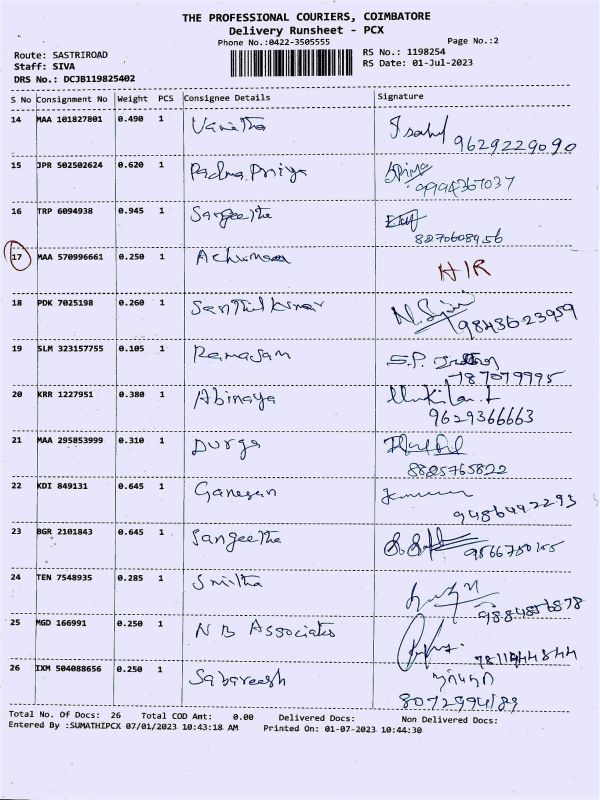 THE PROFESSIONAL COURIERS, COIMBATORE
Delivery Runsheet - PCX
Phone No.:0422-3505555 Page No.:2
Route: SASTRIROAD RS No.: 1198254
Staff: SIVA RS Date: 01-Jul-2023
DRS No.: DCJB119825402
S No Consignment No Weight PCS Consignee Details Signature
14 MAA 101827801 0.490 1 Vanitha 9629229090
15 JPR 502502624 0.620 1 Padma Priya
16 TRP 6094938 0.945 1 Sangeetha 8270608956
17 MAA 570996661 0.250 1 H/R
18 PDK 7025198 0.260 1 Senthil Kumar 9843623959
19 SLM 323157755 0.105 1 Ramasam 787079995
20 KRR 1227951 0.380 1 Abinaya 9629366663
21 MAA 295853999 0.310 1 Durga 8825765822
22 KDI 849131 0.645 1 Ganesan 9486492293
23 BGR 2101843 0.645 1 Sangeetha
24 TEN 7548935 0.285 1 Smitha 9884856878
25 MGD 166991 0.250 1 N B Associates
26 IXM 504088656 0.250 1 Sabareesh 8072994189
Total No. Of Docs: 26 Total COD Amt: 0.00 Delivered Docs: Non Delivered Docs:
Entered By :SUMATHIPCX 07/01/2023 10:43:18 AM Printed On: 01-07-2023 10:44:30